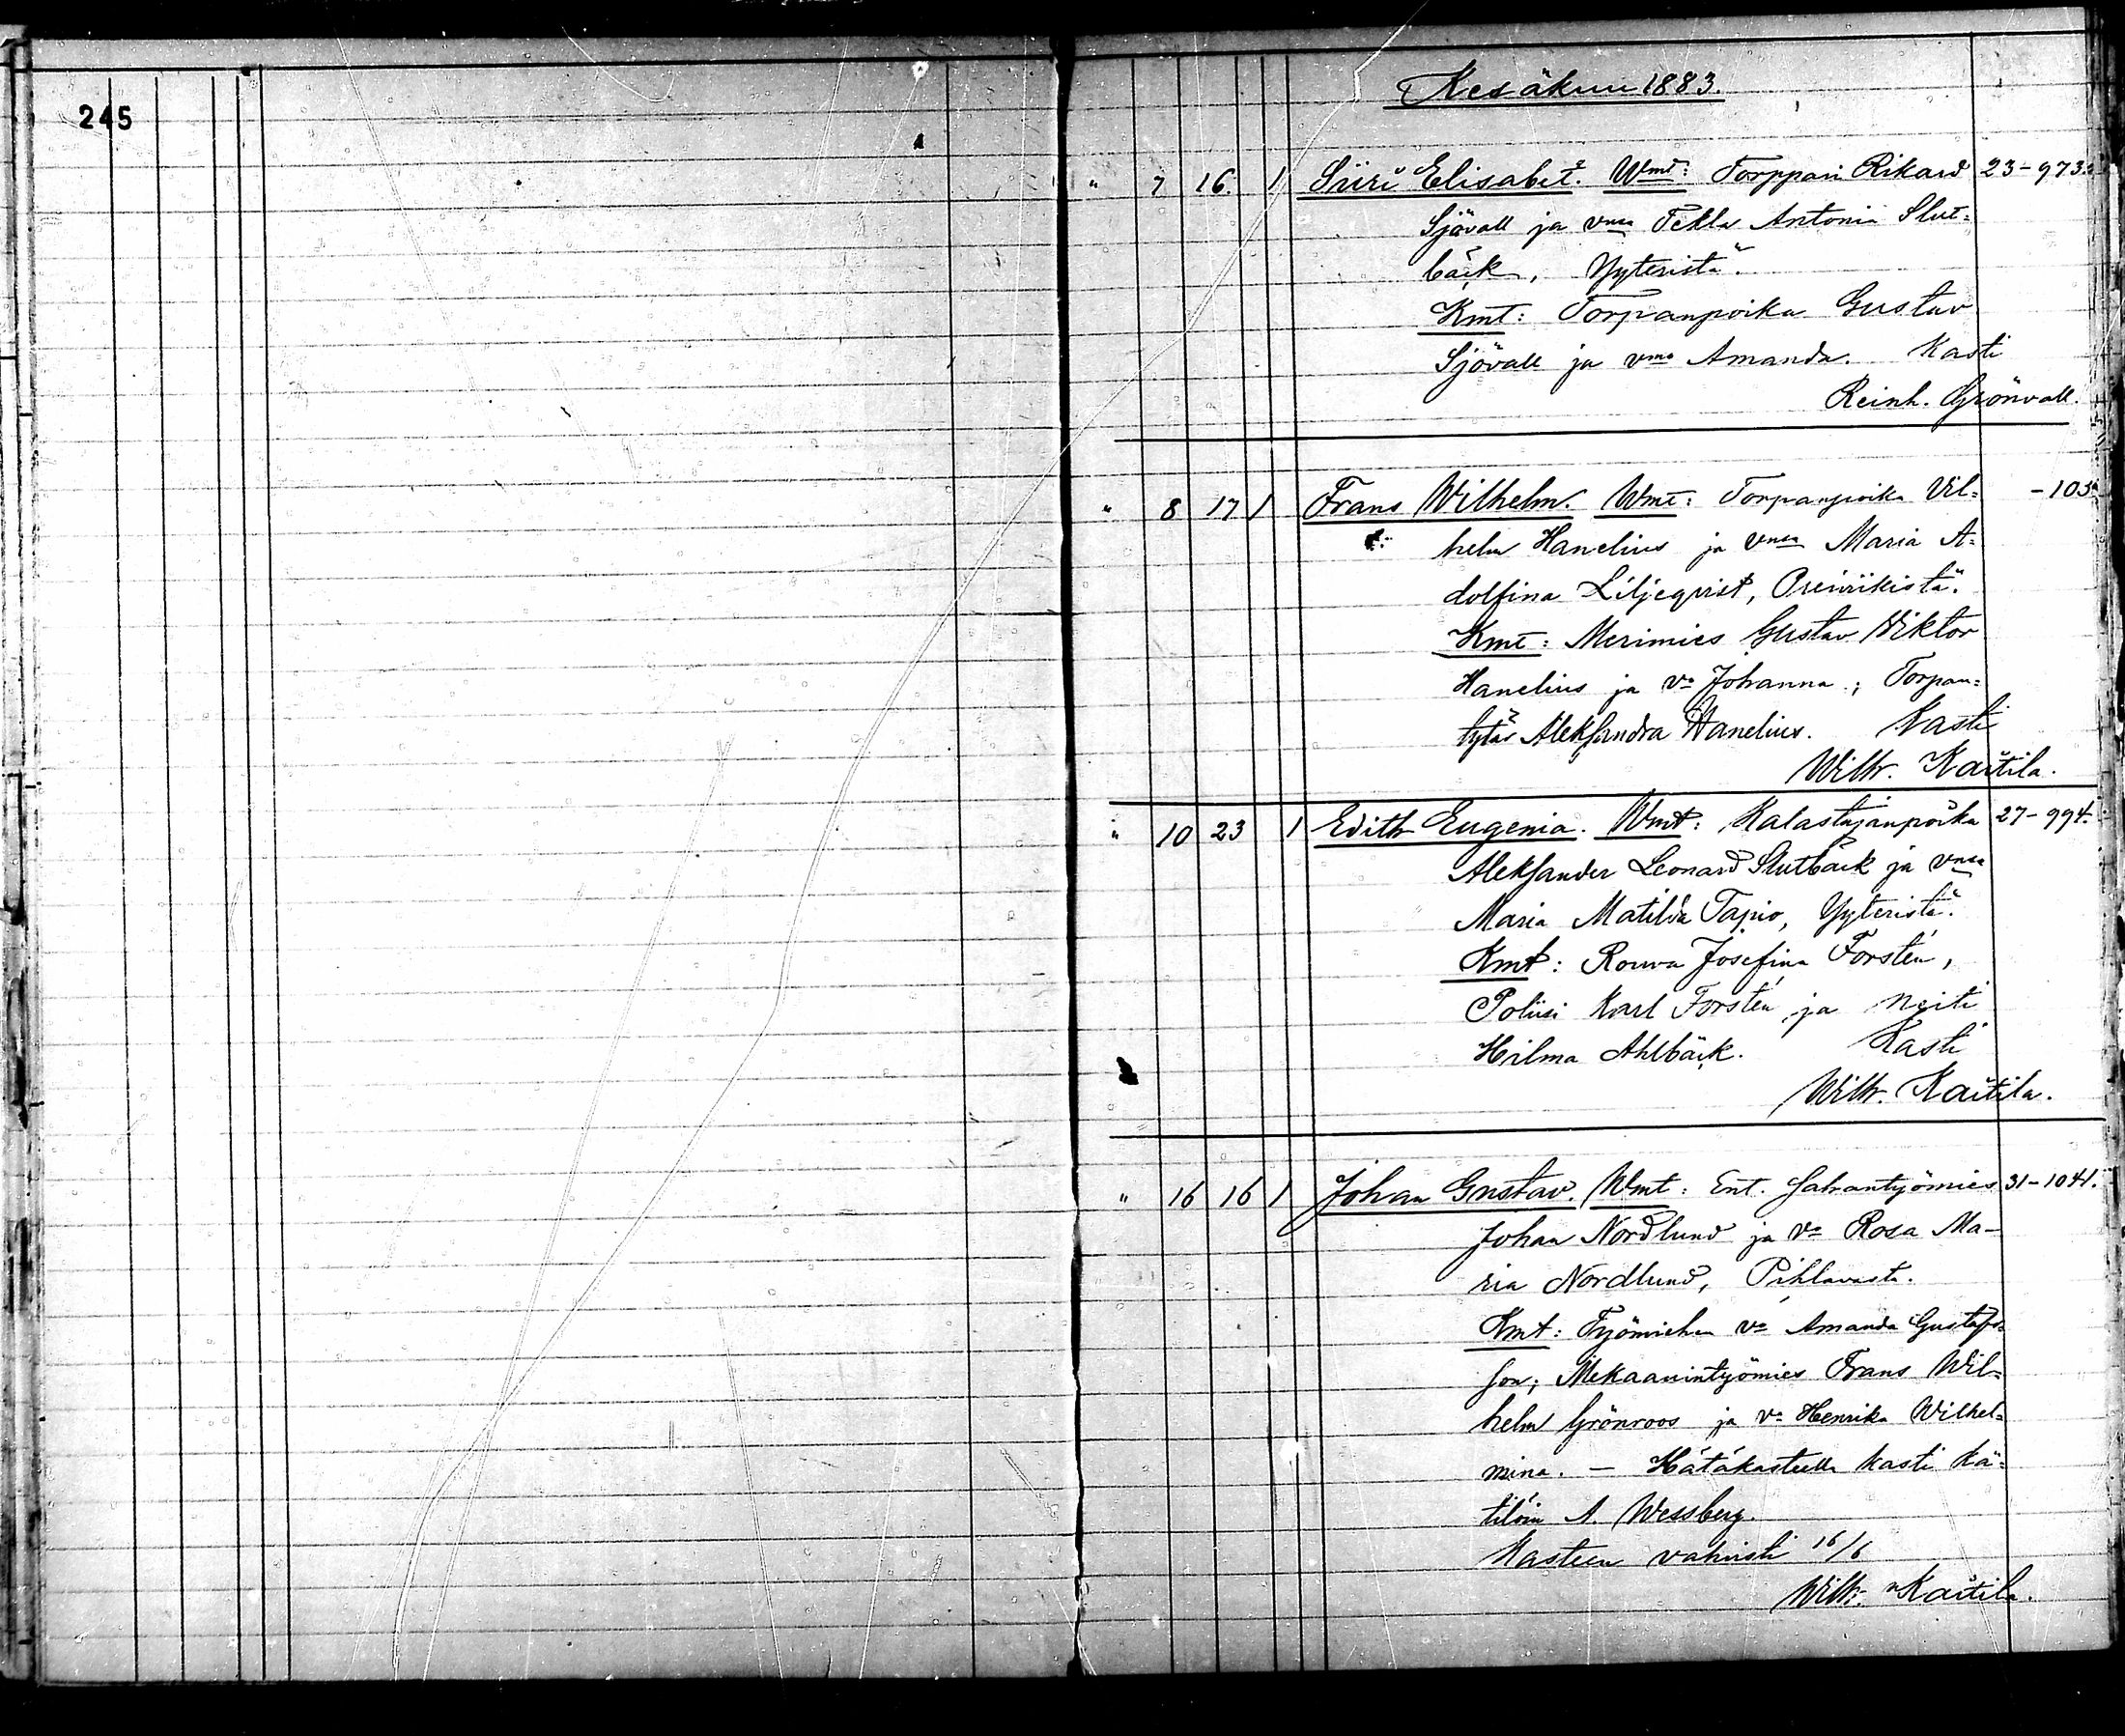 245
Kesäkuu 1883.
" 7 16. 1 Siiri Elisabet. Wmt: Torppari Rikard 23-973.
Sjövall ja vmsa Tekla Antonia Slut=
bäck, Yyteristä.
Kmt: Torpanpoika Gustav
Sjövall ja vmo Amanda. Kasti
Reinh. Grönvall.
" 8 17 1 Frans Wilhelm. Wmt: Torpanpoika Vil= -103
helm Hanelius ja vmsa Maria A=
dolfina Liljeqvist, Preiviikistä.
Kmt: Merimies Gustav Viktor
Hanelius ja vo Johanna; Torpan=
tytär Aleksandra Hanelius. Kasti
Wilh. Kaitila.
" 10 23 1 Edith Eugenia. Wmt: Kalastajanpoika 27-994.
Aleksander Leonard Slutbäck ja vmsa
Maria Matilda Tapio, Yyteristä.
Kmt: Rouva Josefina Forstén,
Poliisi Karl Forstén ja neiti
Hilma Ahlbäck. Kasti
Wilh. Kaitila.
" 16 16 1 Johan Gustav. Wmt: Ent. Sahantyömies 31-1041.
Johan Nordlund ja vo Rosa Ma-
ria Nordlund, Pihlavasta.
Kmt: Työmiehen vo Amanda Gustafs=
son; Mekaanintyömies Frans Wil=
helm Grönroos ja vo Henrika Wilhel=
mina. - Hätäkasteella kasti kä=
tilöin A. Wessberg.
Kasteen vahvisti 16/6
Wilh. Kaitila.